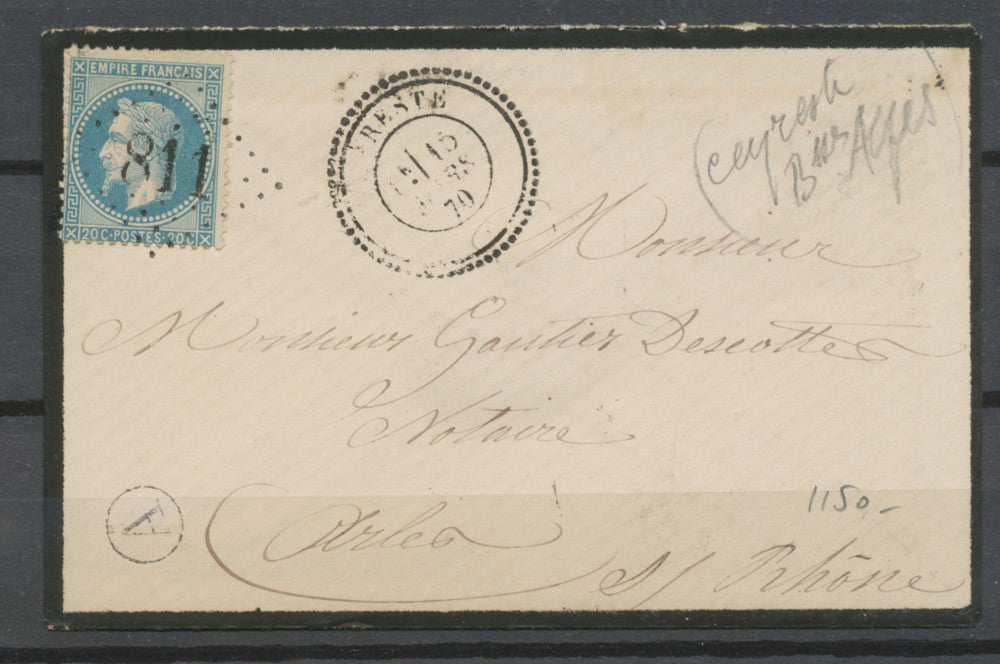 EMPIRE FRANCAIS
811
20 C·POSTES·20 C
RESTE
70
(ceyreste
Bses Alpes)
Monsieur
Monsieur Gautier Descottes
Notaire
Arles
s/ Rhône
A
1150-